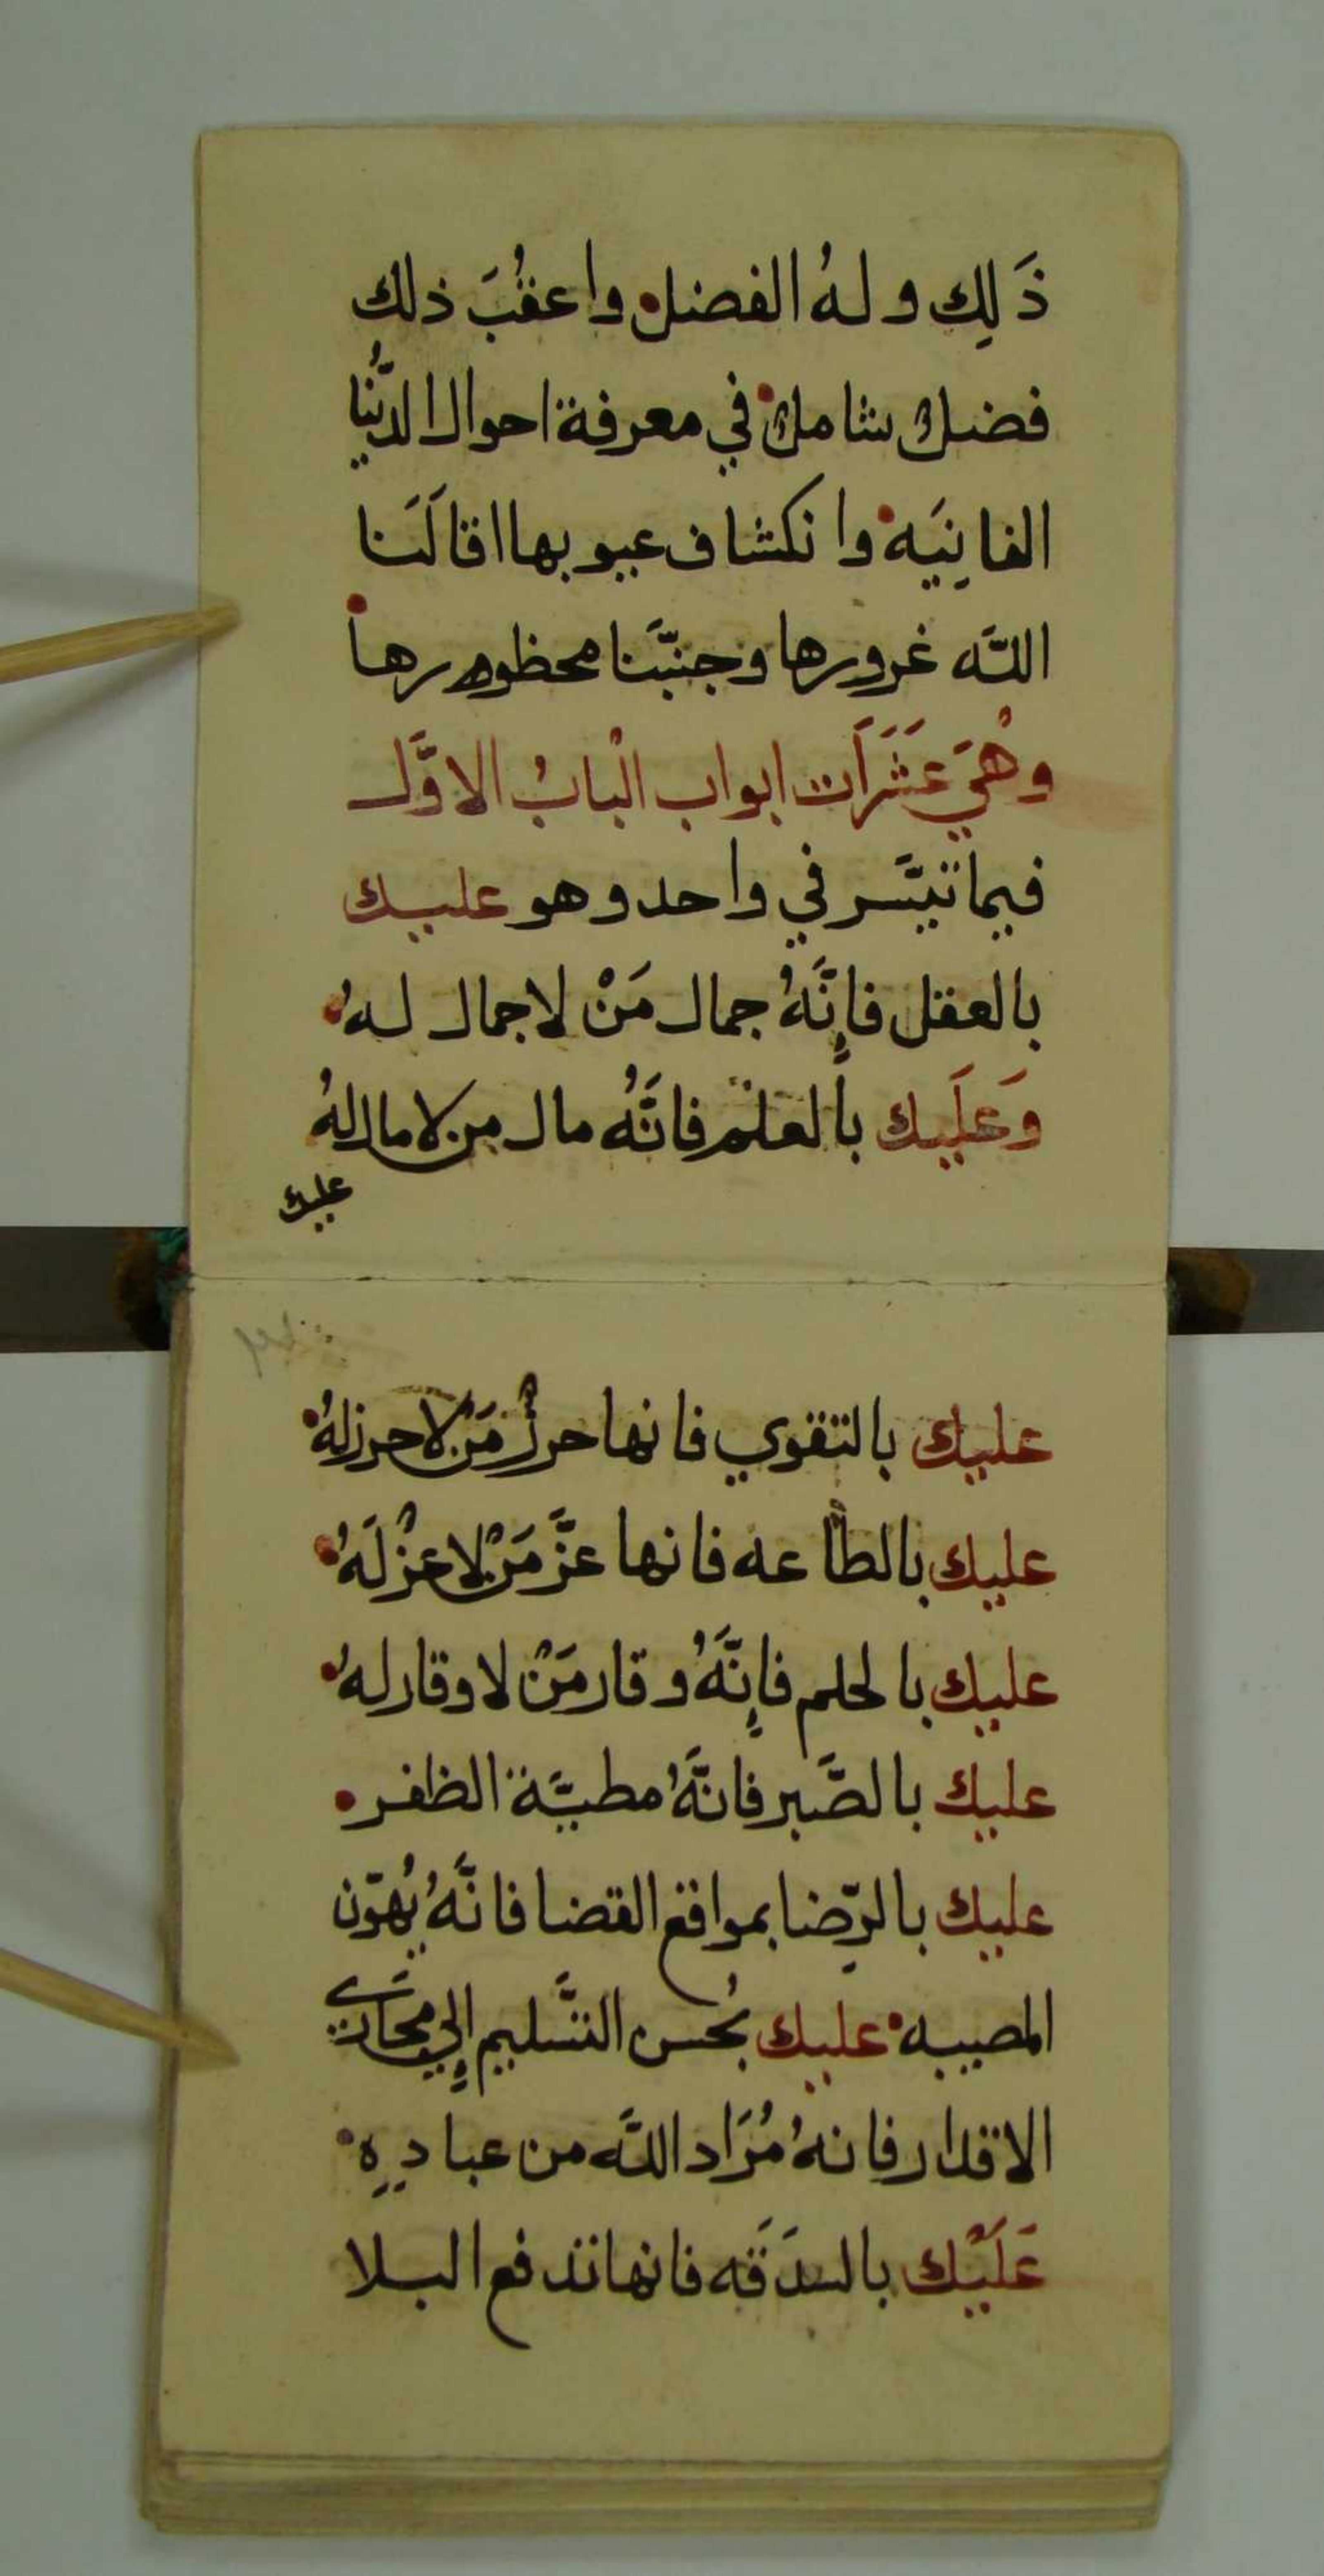 ذَلِك ولهُ الفضل واعقُبَ ذلك
فضل شامل في معرفة احوال الدُّنيا
الفانِيَه وانكشاف عيوبها اقالَنا
اللَّه غرورها وجنبَّنا محظورها
وهْيَ عَشَرَات ابواب الْبابُ الاوَّل
فيما تيسَّر في واحد وهو عليك
بالعقل فإنَّهُ جمال مَنْ لا جمال لهُ
وَعَلَيك بالعلم فانَّهُ مال من لا مال لهُ
عليك
عليك بالتقوي فانها حرزُ مَنْ لا حرز لهُ
عليك بالطاعه فانها عزَّ مَنْ لا عزْ لَهُ
عليك بالحلم فإنَّهُ وقار مَنْ لا وقار لهُ
عليك بالصَّبر فانَّهُ مطيَّة الظفر
عليك بالرِّضا بمواقع القضا فانَّهُ يُهوّن
المصيبه عليك بُحسن التَّسليم إلي مجَاري
الاقدار فانهُ مُرَاد اللَّه من عبادِهِ
عَلَيْك بالسدَقَه فانها تدفع البلا